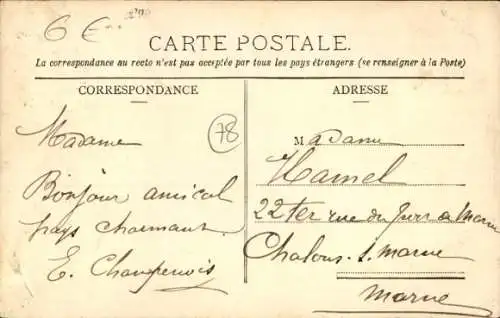 6 €
CARTE POSTALE.
La correspondance au recto n'est pas acceptée par tous les pays étrangers (se renseigner à la Poste)
CORRESPONDANCE
Madame
Bonjour amical
pays charmant
E. Champenois
78
ADRESSE
Madame
Hamel
22 ter rue du Jars à Marne
Chalons. s. marne
Marne